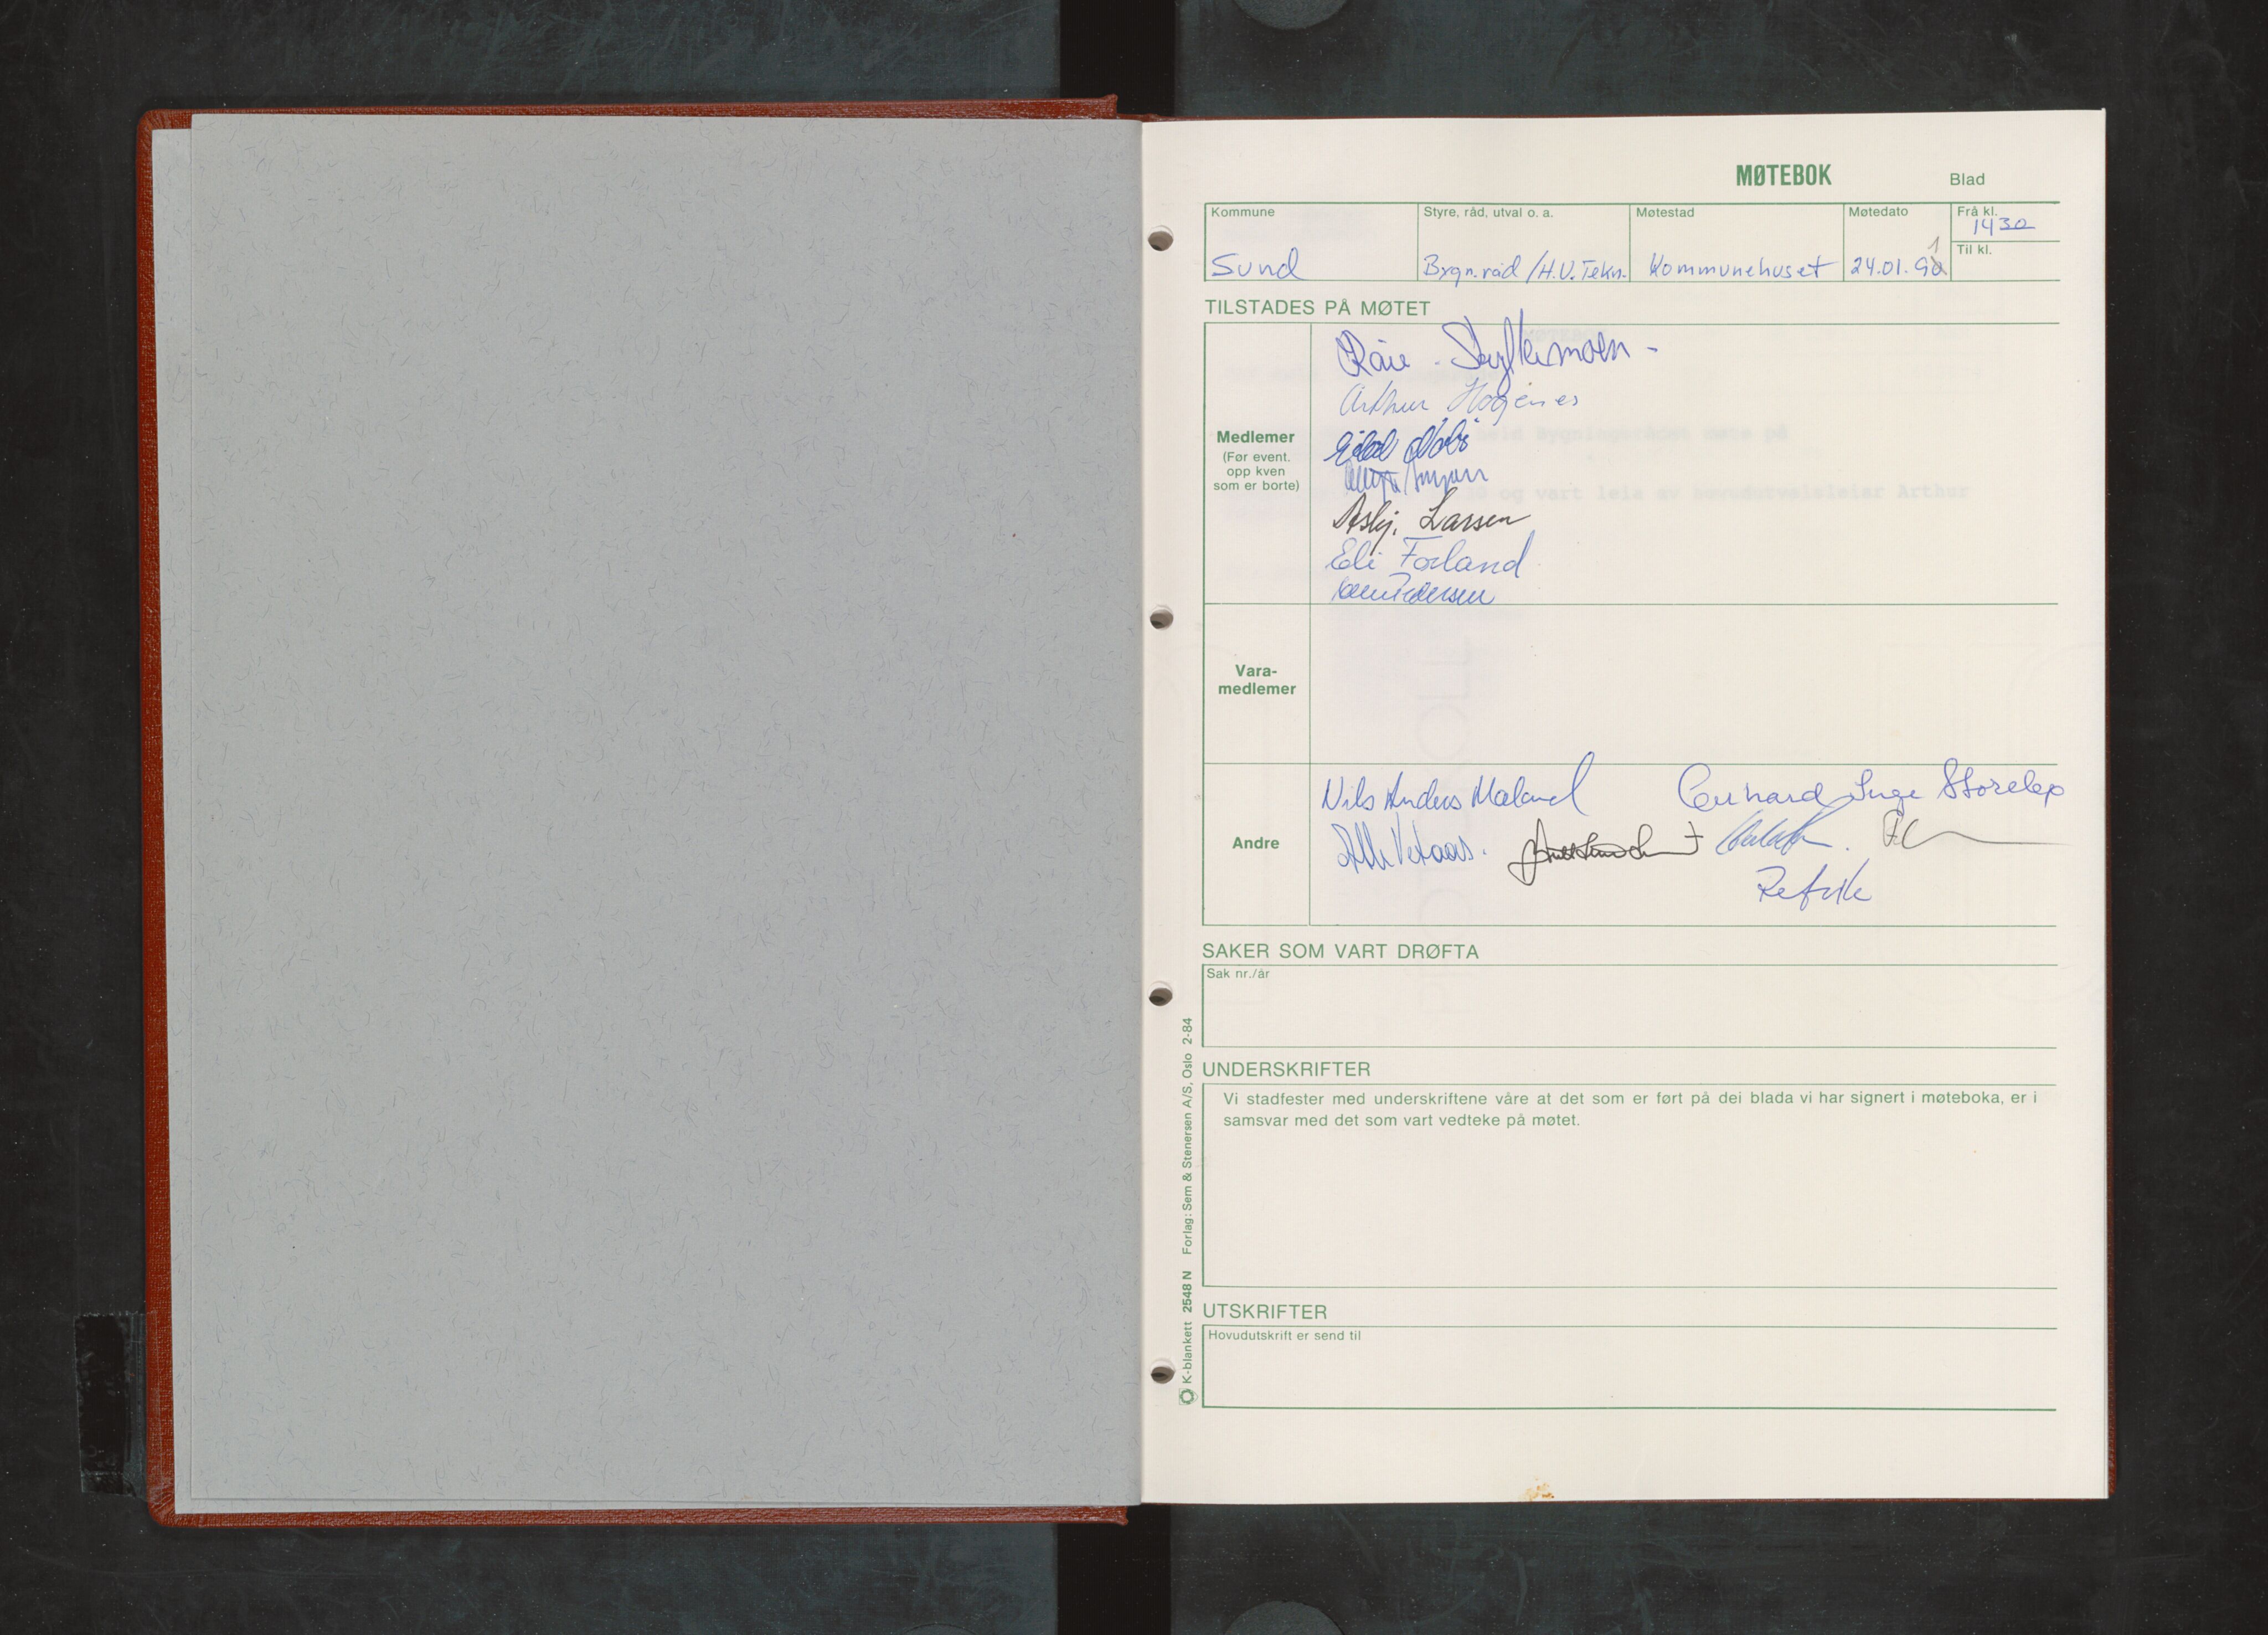 MØTEBOK
Blad
Kommune
Styre, råd, utval o. a.
Møtestad
Møtedato
Frå kl.
1430
Til kl.
Sund
Bygn.råd/H.U.Tekn.
Kommunehuset
24.01.91
TILSTADES PÅ MØTET
Medlemer
(Før event.
opp kven
som er borte)
Arthur
Asbj. Larsen
Eli Forland
Pedersen
Vara-
medlemer
Andre
Nils Anders Mæland
Gerhard Inge Storebø
SAKER SOM VART DRØFTA
Sak nr./år
UNDERSKRIFTER
Vi stadfester med underskriftene våre at det som er ført på dei blada vi har signert i møteboka, er i
samsvar med det som vart vedteke på møtet.
UTSKRIFTER
Hovudutskrift er send til
K-blankett 2548 N Forlag: Sem & Stenersen A/S, Oslo 2-84